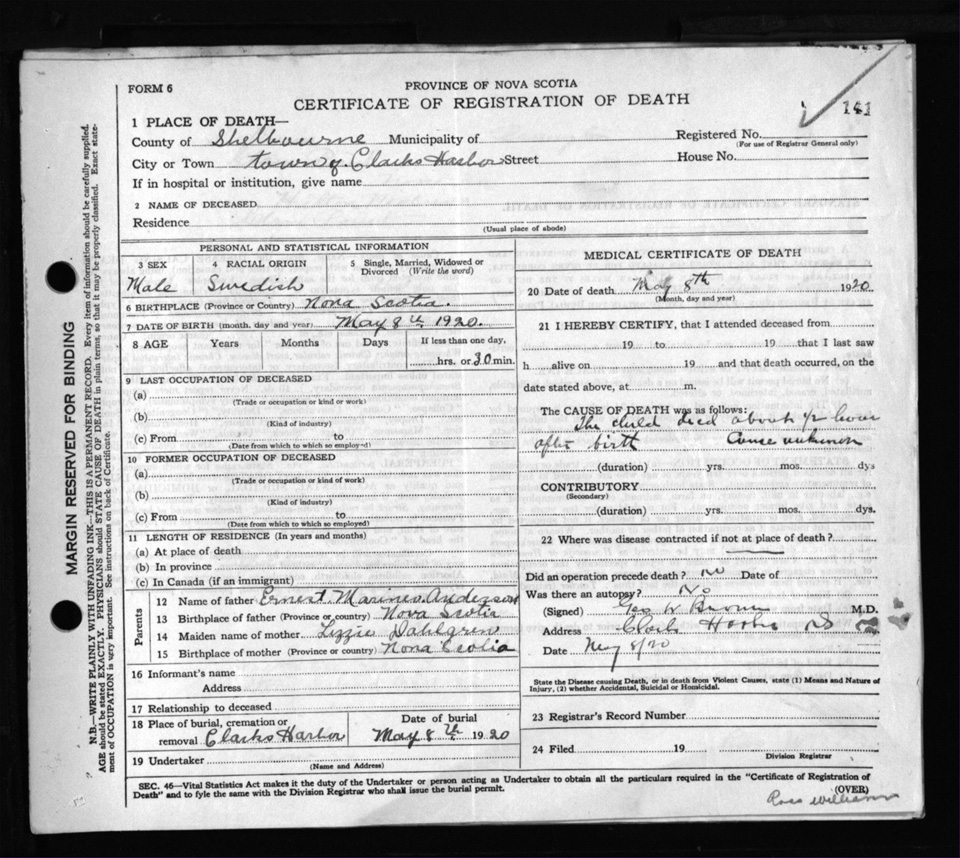 FORM 6
PROVINCE OF NOVA SCOTIA
CERTIFICATE OF REGISTRATION OF DEATH
141
1 PLACE OF DEATH—
County of Shelbourne Municipality of Registered No.
(For use of Registrar General only)
City or Town town of Clarks Harbor Street House No.
If in hospital or institution, give name
2 NAME OF DECEASED
Residence
(Usual place of abode)
PERSONAL AND STATISTICAL INFORMATION
3 SEX 4 RACIAL ORIGIN 5 Single, Married, Widowed or Divorced (Write the word)
Male Swedish
6 BIRTHPLACE (Province or Country) Nova Scotia.
7 DATE OF BIRTH (month, day and year) May 8th 1920.
8 AGE Years Months Days If less than one day,
hrs. or 30 min.
9 LAST OCCUPATION OF DECEASED
(a)
(Trade or occupation or kind or work)
(b)
(Kind of industry)
(c) From to
(Date from which to which so employed)
10 FORMER OCCUPATION OF DECEASED
(a)
(Trade or occupation or kind of work)
(b)
(Kind of industry)
(c) From to
(Date from which to which so employed)
11 LENGTH OF RESIDENCE (In years and months)
(a) At place of death
(b) In province
(c) In Canada (if an immigrant)
Parents
12 Name of father Ernest Mariner Anderson
13 Birthplace of father (Province or country) Nova Scotia
14 Maiden name of mother Lizzie Dahlgren
15 Birthplace of mother (Province or country) Nova Scotia
16 Informant's name
Address
17 Relationship to deceased
18 Place of burial, cremation or removal Clarks Harbor
Date of burial
May 8th 1920
19 Undertaker
(Name and Address)
MEDICAL CERTIFICATE OF DEATH
20 Date of death May 8th 1920
(Month, day and year)
21 I HEREBY CERTIFY, that I attended deceased from
19 to 19 that I last saw
h alive on 19 and that death occurred, on the
date stated above, at m.
The CAUSE OF DEATH was as follows:
The child died about 1/2 hour
after birth Cause unknown
(duration) yrs. mos. dys
CONTRIBUTORY
(Secondary)
(duration) yrs. mos. dys.
22 Where was disease contracted if not at place of death?
Did an operation precede death? No Date of
Was there an autopsy? No
(Signed) Geo W Brown M.D.
Address Clarks Harbor NS
Date May 8/20
State the Disease causing Death, or in death from Violent Causes, state (1) Means and Nature of
Injury, (2) whether Accidental, Suicidal or Homicidal.
23 Registrar's Record Number
24 Filed 19
Division Registrar
SEC. 46—Vital Statistics Act makes it the duty of the Undertaker or person acting as Undertaker to obtain all the particulars required in the "Certificate of Registration of
Death" and to fyle the same with the Division Registrar who shall issue the burial permit.
(OVER)
Ross Williams
MARGIN RESERVED FOR BINDING
N.B.—WRITE PLAINLY WITH UNFADING INK—THIS IS A PERMANENT RECORD. Every item of information should be carefully supplied.
AGE should be stated EXACTLY. PHYSICIANS should STATE CAUSE OF DEATH in plain terms, so that it may be properly classified. Exact state-
ment of OCCUPATION is very important. See instructions on back of Certificate.